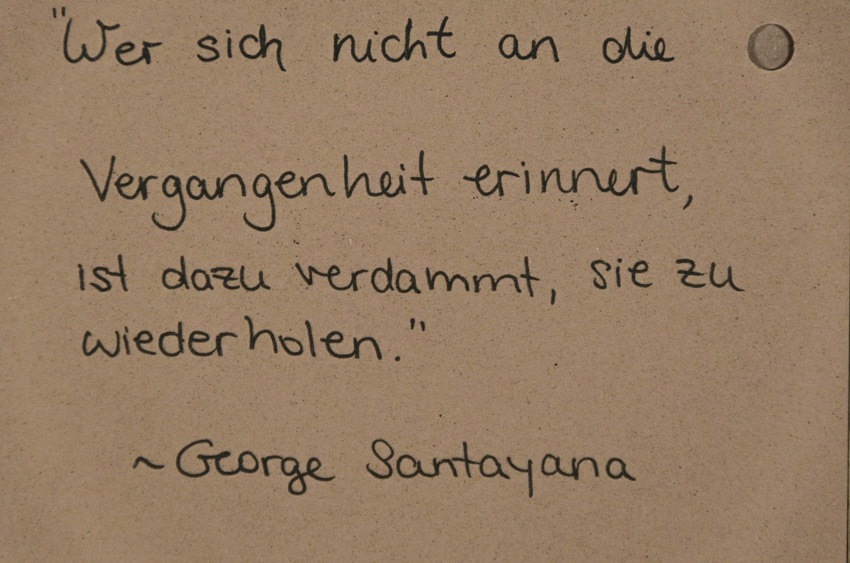 "Wer sich nicht an die
Vergangenheit erinnert,
ist dazu verdammt, sie zu
wiederholen."
~George Santayana